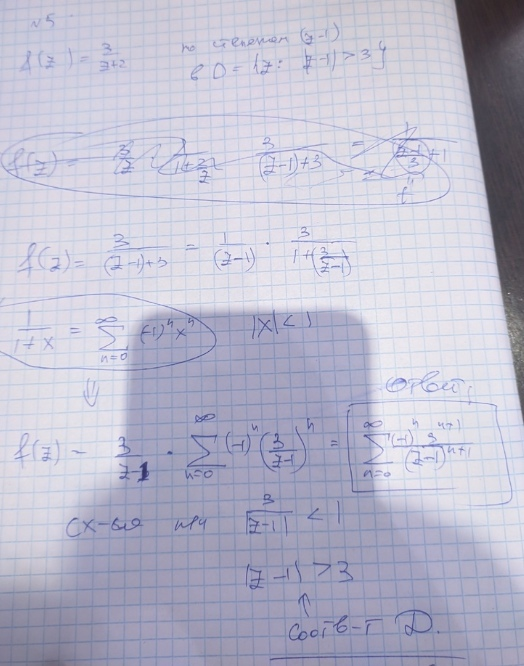 №5
f(z) = 3/(z+2) по степеням (z-1)
в D = {z: |z-1| > 3}
f(z) = 3/((z-1)+3) = 1/(z-1) · 3/(1+(3/(z-1)))
1/(1+x) = ∑_{n=0}^{∞} (-1)^n x^n |x| < 1
⇓
Ответ:
f(z) = 3/(z-1) · ∑_{n=0}^{∞} (-1)^n (3/(z-1))^n = ∑_{n=0}^{∞} (-1)^n 3^{n+1}/(z-1)^{n+1}
сх-ся при 3/|z-1| < 1
|z-1| > 3
↑
соотв-т D.